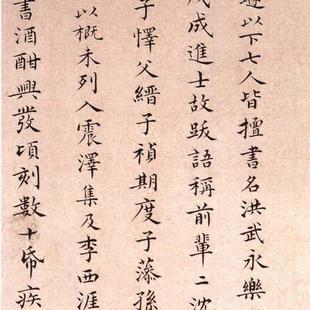 以下七人皆擅書名洪武永樂
成進士故跋語稱前輩二沈
子懌父縉子禎期度子藻孫
以概未列入震澤集及李西涯
書酒酣興發頃刻數十帋疾